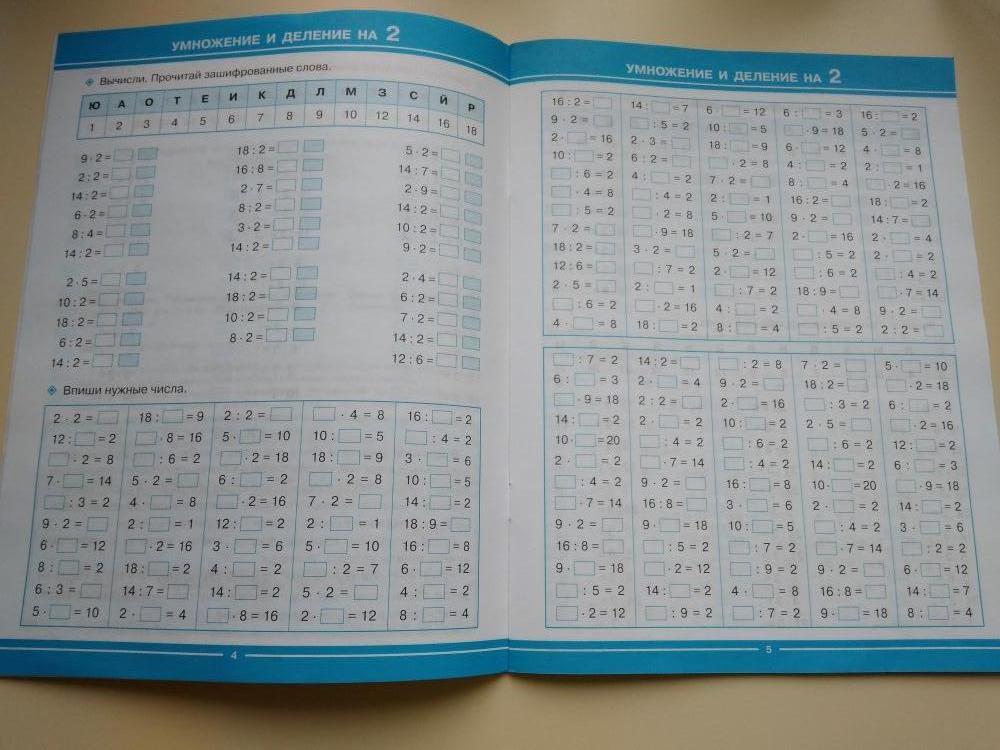 УМНОЖЕНИЕ И ДЕЛЕНИЕ НА 2
Вычисли. Прочитай зашифрованные слова.
Ю А О Т Е И К Д Л М З С Й Р
1 2 3 4 5 6 7 8 9 10 12 14 16 18
9 · 2 = 18 : 2 = 5 · 2 =
2 : 2 = 16 : 8 = 14 : 7 =
14 : 2 = 2 · 7 = 2 · 9 =
6 · 2 = 8 : 2 = 14 : 2 =
8 : 4 = 3 · 2 = 10 : 2 =
14 : 2 = 14 : 2 = 9 · 2 =
2 · 5 = 14 : 2 = 2 · 4 =
10 : 2 = 18 : 2 = 6 : 2 =
18 : 2 = 10 : 2 = 7 · 2 =
6 : 2 = 8 · 2 = 14 : 2 =
14 : 2 = 12 : 6 =
Впиши нужные числа.
2 · 2 = 18 : = 9 2 : 2 = · 4 = 8 16 : = 2
12 : = 2 · 8 = 16 5 · = 10 10 : = 5 : 4 = 2
· 2 = 8 : 6 = 2 · 2 = 18 18 : = 9 3 · = 6
7 · = 14 5 · 2 = 6 : = 2 · 2 = 8 10 : = 5
: 3 = 2 4 · = 8 · 2 = 16 7 · 2 = 14 : = 2
9 · 2 = 2 : = 1 12 : = 2 2 : = 1 18 : 9 =
6 · = 12 · 2 = 16 3 · = 6 5 · = 10 16 : = 8
8 : = 2 18 : = 2 4 : = 2 : 2 = 7 6 · = 12
6 : 3 = 14 : 7 = 14 : = 2 5 · 2 = 4 : = 2
5 · = 10 2 · = 4 · 8 = 16 2 · = 12 8 : = 4
4
УМНОЖЕНИЕ И ДЕЛЕНИЕ НА 2
16 : 2 = 14 : = 7 6 · = 12 6 : = 3 16 : = 2
9 · 2 = : 5 = 2 10 : = 5 · 9 = 18 5 · 2 =
2 · = 16 2 · 3 = 18 : = 9 6 · = 12 4 · = 8
10 : = 2 6 : 2 = · 2 = 8 4 : = 2 2 : = 1
: 6 = 2 4 : = 2 7 · 2 = 8 : = 4 · 2 = 16
· 4 = 8 : 4 = 2 2 : = 1 16 : 2 = 18 : = 2
: 5 = 2 · 2 = 8 5 · = 10 9 · 2 = 14 : 7 =
7 · 2 = · 9 = 18 : 2 = 7 2 · = 16 2 · = 4
18 : 2 = 3 · 2 = 5 · 2 = : 5 = 2 2 · = 2
12 : 6 = : 7 = 2 2 · = 12 : 6 = 2 : 4 = 2
2 · 5 = 2 : = 1 : 7 = 2 18 : 9 = · 7 = 14
: 6 = 2 · 2 = 16 4 : = 2 · 4 = 8 9 · 2 =
4 · = 8 18 : = 2 8 : = 4 : 5 = 2 2 : 2 =
: 7 = 2 14 : 2 = : 2 = 8 7 · 2 = 5 · = 10
6 : = 3 2 · = 4 9 · 2 = 18 : 2 = · 2 = 18
· 9 = 18 2 : 2 = 2 · = 16 : 3 = 2 6 : = 2
14 : = 2 2 · = 2 10 : = 2 2 · 5 = · 2 = 16
10 · = 20 : 4 = 2 : 6 = 2 : 6 = 2 12 : = 2
2 · = 2 · 7 = 14 : 4 = 2 14 : = 2 6 : = 3
: 4 = 2 9 · 2 = 16 : = 8 10 · = 20 · 9 = 18
· 7 = 14 16 : 8 = 3 · = 6 2 · = 2 14 : = 2
9 · 2 = 9 · = 18 10 : = 5 : 4 = 2 3 · = 6
16 : 8 = : 5 = 2 : 7 = 2 · 7 = 14 : 2 = 2
9 · = 18 · 2 = 12 : 9 = 2 9 · 2 = 6 · = 12
: 5 = 2 14 : = 2 4 · = 8 16 : 8 = 14 : = 7
· 2 = 12 : 9 = 2 : 7 = 2 9 · = 18 8 : = 4
5